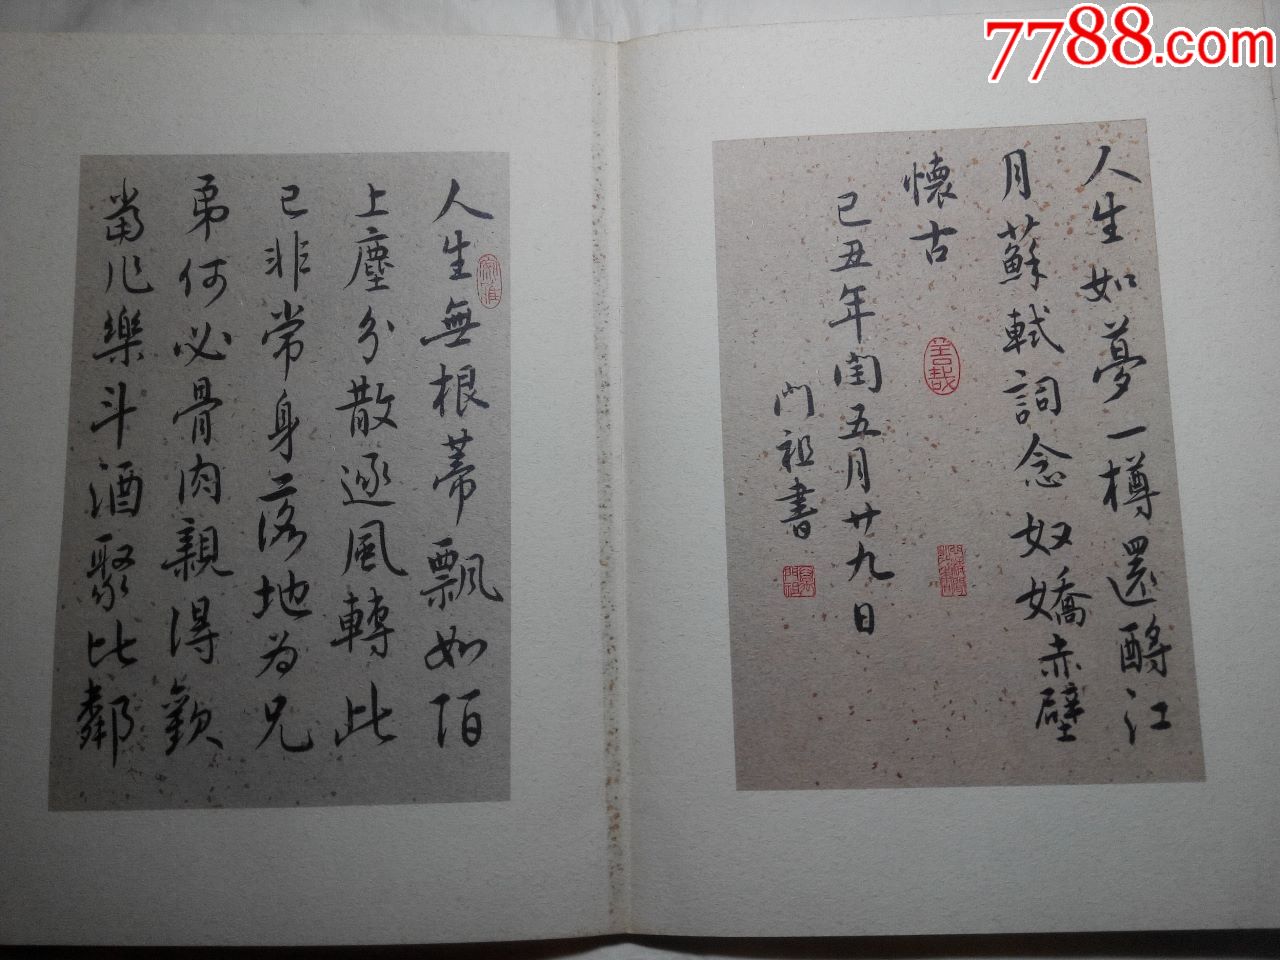 7788.com
人生如夢一樽還酹江
月蘇軾詞念奴嬌赤壁
懷古
己丑年閏五月廿九日
門祖書
善哉
人生無根蒂飄如陌
上塵分散逐風轉此
已非常身落地為兄
弟何必骨肉親得歡
當作樂斗酒聚比鄰